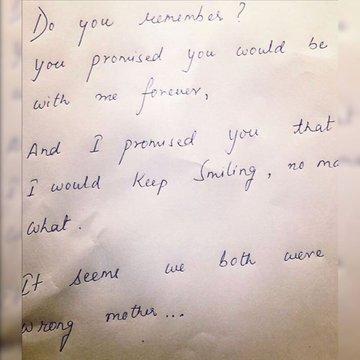 Do you remember?
you promised you would be
with me forever,
And I promised you that
I would Keep Smiling, no
what.
It seems we both were
wrong mother...